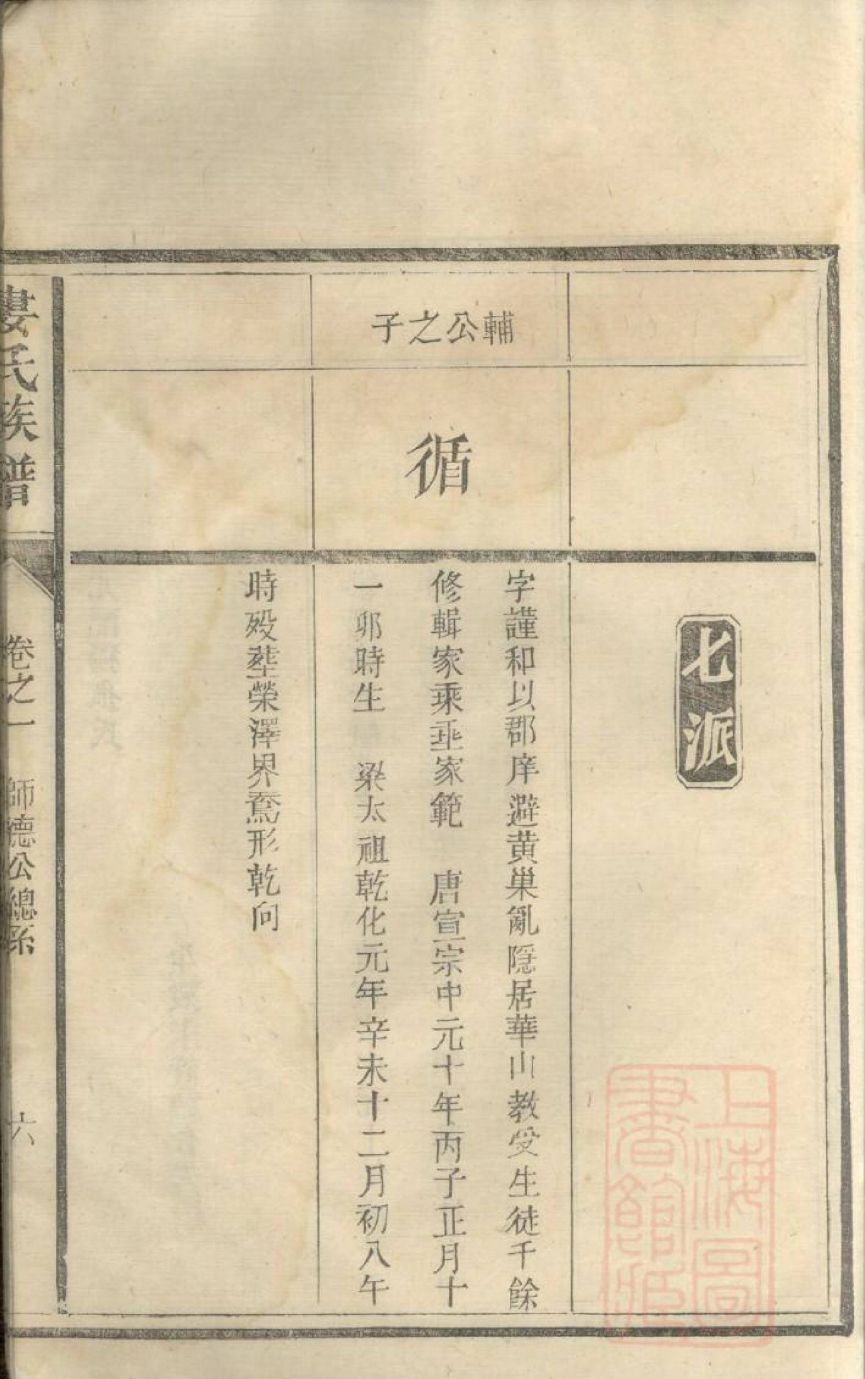 七派
輔公之子
循
字謹和以郡庠避黄巢亂隠居華山教受生徒千餘
修輯家乘垂家範　唐宣宗中元十年丙子正月十
一卯時生　梁太祖乾化元年辛未十二月初八午
時殁塟榮澤界鴌形乾向
婁氏族譜
卷之一
師德公總系
六
上海圖
書館藏